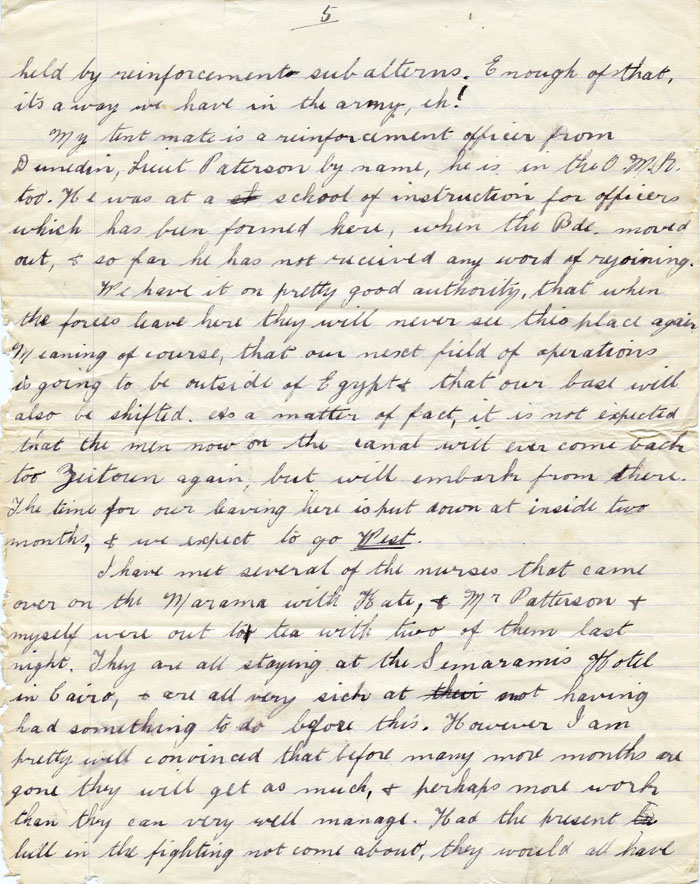 5
held by reinforcement subalterns. Enough of that,
its a way we have in the army, eh!
My tent mate is a reinforcement officer from
Dunedin, Lieut Paterson by name, he is in the O.M.R.
too. He was at a school of instruction for officers
which has been formed here, when the Bde moved
out, & so far he has not received any word of rejoining.
We have it on pretty good authority, that when
the forces leave here they will never see this place again
Meaning of course, that our next field of operations
is going to be outside of Egypt & that our base will
also be shifted. As a matter of fact, it is not expected
that the men now on the canal will ever come back
too Zeitoun again, but will embark from there.
The time for our leaving here is put down at inside two
months, & we expect to go West.
I have met several of the nurses that came
over on the Marama with Kate, & Mr Patterson &
myself were out to tea with two of them last
night. They are all staying at the Semaramis Hotel
in Cairo, & are all very sick at their not having
had something to do before this. However I am
pretty well convinced that before many more months are
gone they will get as much, & perhaps more work
than they can very well manage. Had the present
lull in the fighting not come about, they would all have